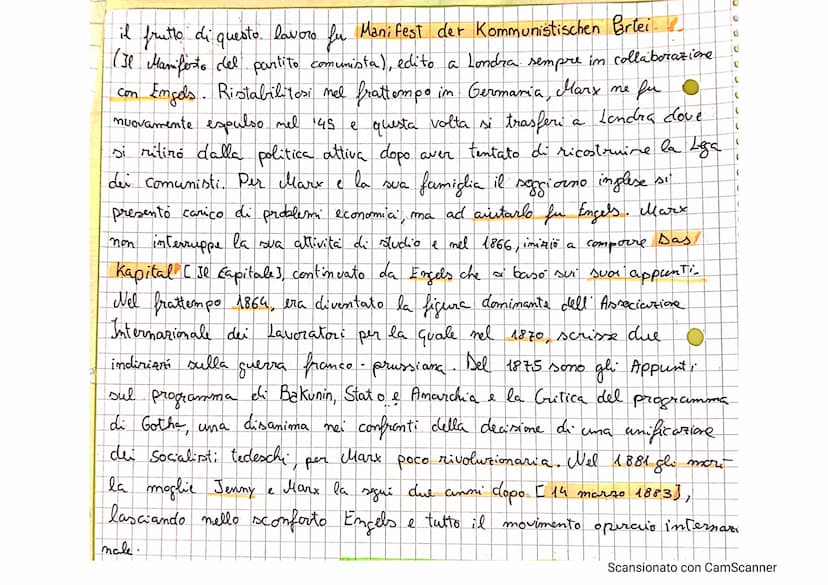 il frutto di questo lavoro fu Manifest der Kommunistischen Partei.
(Il Manifesto del partito comunista), edito a Londra sempre in collaborazione
con Engels. Ristabilitosi nel frattempo in Germania, Marx ne fu
nuovamente espulso nel '45 e questa volta si trasferì a Londra dove
si ritirò dalla politica attiva dopo aver tentato di ricostruire la Lega
dei comunisti. Per Marx e la sua famiglia il soggiorno inglese si
presentò carico di problemi economici, ma ad aiutarlo fu Engels. Marx
non interruppe la sua attività di studio e nel 1866, iniziò a comporre Das
Kapital [Il Capitale], continuato da Engels che si basò sui suoi appunti.
Nel frattempo 1864, era diventato la figura dominante dell'Associazione
Internazionale dei Lavoratori per la quale nel 1870, scrisse due
indirizzi sulla guerra franco-prussiana. Del 1875 sono gli Appunti
sul programma di Bakunin, Stato e Anarchia e la Critica del programma
di Gotha, una disanima nei confronti della decisione di una unificazione
dei socialisti tedeschi, per Marx poco rivoluzionaria. Nel 1881 gli morì
la moglie Jenny e Marx la seguì due anni dopo [14 marzo 1883],
lasciando nello sconforto Engels e tutto il movimento operaio internazio
nale.
Scansionato con CamScanner